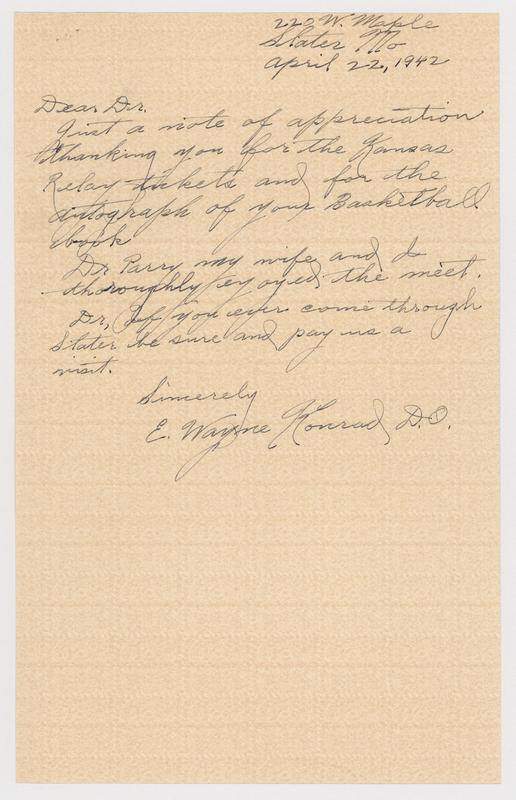 220 W. Maple
Slater Mo
April 22, 1942
Dear Dr.
Just a note of appreciation
thanking you for the Kansas
Relay tickets and for the
autograph of your Basketball
book
Dr Parry my wife and I
thoroughly eyoyed the meet.
Dr, if you ever come through
Slater be sure and pay us a
visit.
Sincerely
E. Wayne Konrad, D.O.